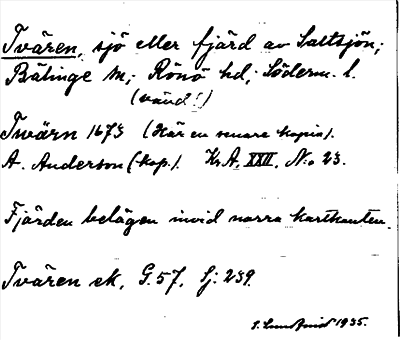 Tvären, sjö eller fjärd av Saltsjön;
Bälinge sn; Rönö hd; Söderm. l.
(vänd!)
Twärn 1673 (Här en senare kopia).
A. Anderson (kop.). Kr.A. XXII, No 23.
Fjärden belägen invid norra kartkanten.
Tvären ek, G. 57, Sj: 239.
1935.